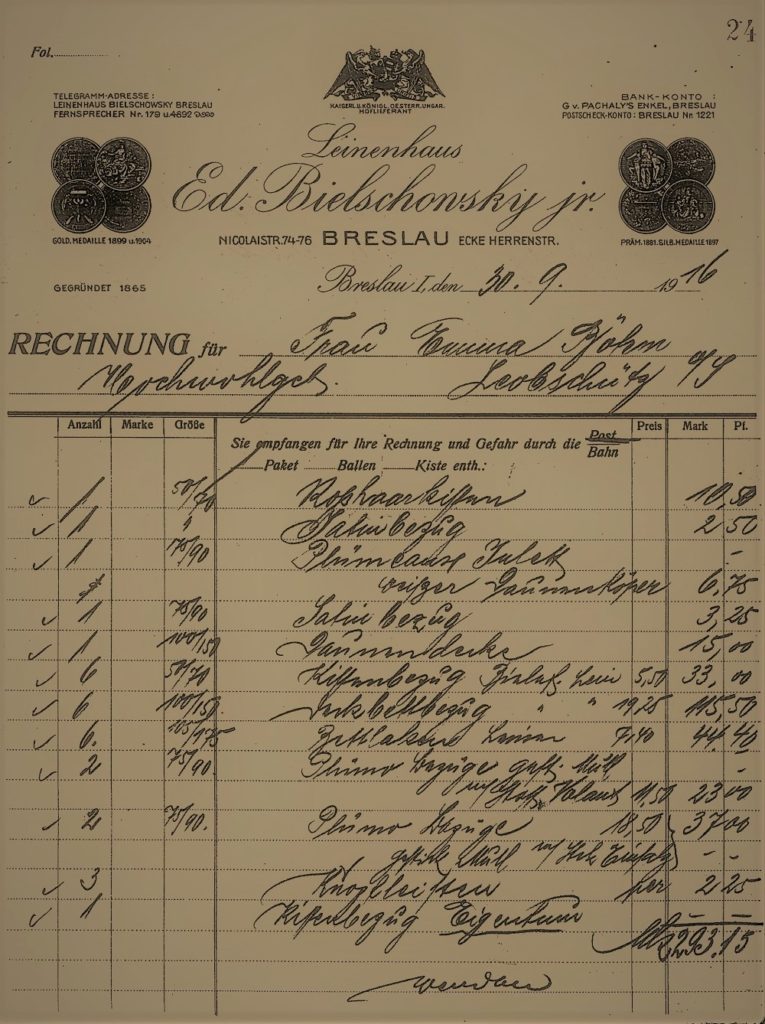 24
Fol.
KAISERL.U.KÖNIGL.OESTERR.UNGAR.
HOFLIEFERANT
TELEGRAMM-ADRESSE:
LEINENHAUS BIELSCHOWSKY BRESLAU
FERNSPRECHER Nr. 179 u. 4692
BANK-KONTO:
G v. PACHALY'S ENKEL, BRESLAU
POSTSCHECK-KONTO: BRESLAU Nr. 1221
Leinenhaus
Ed. Bielschowsky jr.
GOLD. MEDAILLE 1899 u. 1904
NICOLAISTR. 74-76 BRESLAU ECKE HERRENSTR.
PRÄM. 1881. SILB. MEDAILLE 1897
GEGRÜNDET 1865
Breslau I, den 30. 9. 1916
RECHNUNG für Frau Emma Böhm
Hochwohlgeb. Leobschütz o/S
Anzahl Marke Größe Preis Mark Pf.
Sie empfangen für Ihre Rechnung und Gefahr durch die Post Bahn
Paket Ballen Kiste enth.:
1 50/70 Roßhaarkissen 10,50
1 " Satinbezug 2 50
1 75/90 Plümeaux Inlett -
weißer Daunenköper 6,75
1 75/90 Satinbezug 3,25
1 100/150 Daunendecke 15,00
6 50/70 Kissenbezug Bielef. Lein 5,50 33,00
6 100/150 Deckbettbezug " " 19,25 115,50
6. 165/175 Bettlaken Leinen 7,40 44.40
2 75/90. Plümo Bezüge gest. Mull -
m/ Volant 11,50 23 00
2 75/90. Plümo Bezüge 18,50 37 00
gestickt Mull m/ Einsatz - -
3 Knopfleisten per 2 25
1 Kissenbezug Eigentum - -
Mk 293.15
wenden